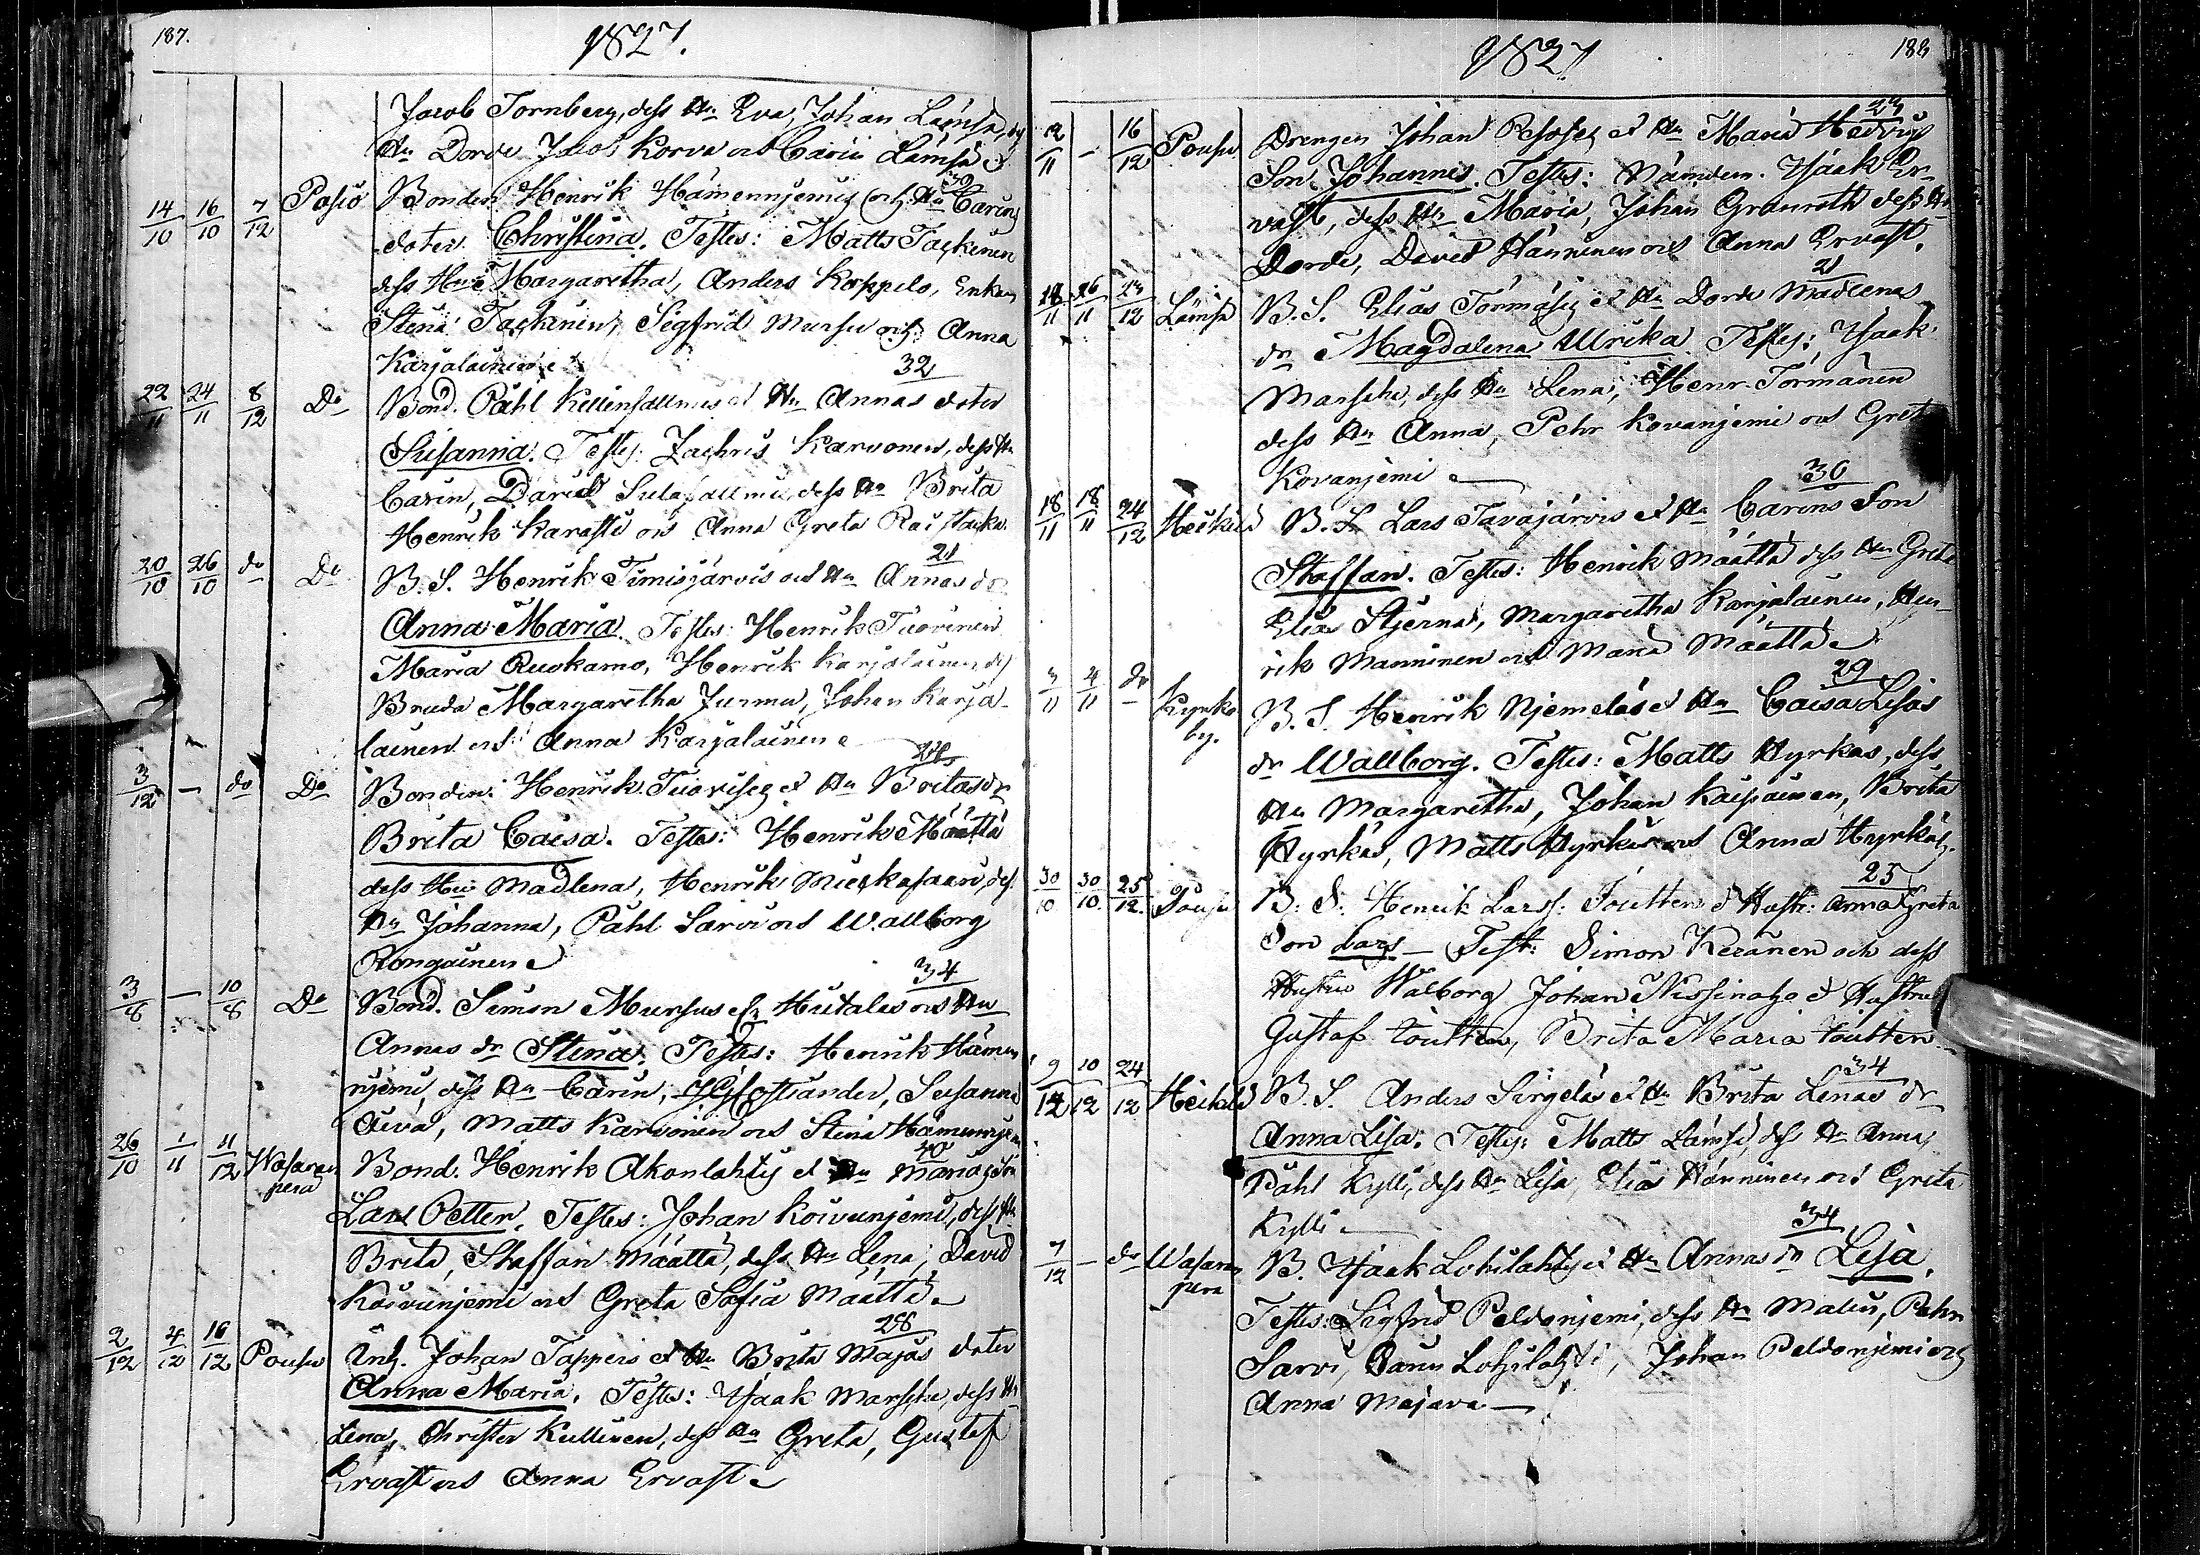 187.
1827.
Jacob Tornberg, dess Hu Eva, Johan Lämsä,
Hu Dorde Jacob Korva och Carin Lämsä
14/10 16/10 7/12 Posio Bonden Henrik Hämennjemis och Hu Carins 39
doter Christina. Testes: Matts Tackinen
dess Hu Margaretha, Anders Koppelo, Enkan
Stina Tackinen, Sigfrid Mursu och Anna
Karjalainen
22/11 24/11 8/12 Do Bond. Påhl Kellinsallmis et Hu Annas doter 32
Susanna. Testes: Zachris Karvonen, dess Hu
Carin, David Sulasallmi, dess Hu Brita
Henrik Karasti och Anna Greta
20/10 26/10 do Do B. S. Henrik Timisjärvis och Hu Annas dr 21
Anna Maria. Testes: Henrik Tuovinen
Maria Ruokamo, Henrik Karjalainen, dess
Bruda Margaretha Jurmu, Johan Karja-
lainen och Anna Karjalainen
3/12 — do Do Bonden Henrik Tuovises et Hu Britas dr
Brita Caisa. Testes: Henrik Määttä
dess Hu Madlena, Henrik Mustkasaari, dess
Hu Johanna, Påhl Sarvi och Wallborg
Rongainen
3/8 — 10/8 Do Bond. Simon Mursus och Hu 34
Annas dr Stina. Testes: Henrik Hämen-
njemi, dess Hu Carin, Susanna
Aiva, Matts Karvonen och Stina Hämennjemi
26/10 1/11 11/12 Wasaran pera Bond. Henrik Akonlahtis et Hu Marias son 40
Lars Petter. Testes: Johan Koivunjemi, dess Hu
Brita, Staffan Määttä, dess Hu Lena, David
Koivunjemi och Greta Sofia Määttä
2/12 4/12 16/12 Pousu Inh. Johan Tappers et Hu Brita Majas doter 28
Anna Maria. Testes: Isaak Marsche, dess Hu
Lena, Christer Kullinen, dess Hu Greta, Gustaf
Ervast och Anna Ervast
1827
188
12/11 — 16/12 Pousu Drengen Johan et Hu Maria Hedvigs 23
Son Johannes. Testes: Nämdem. Isaak Er-
vast, dess Hu Maria, Johan Granroth dess Hu
Dorde, David Hänninen och Anna Ervast.
18/11 26/11 23/12 Lämsä B. S. Elias Törmäsis et Hu Dorde Madlenas 21
dr Magdalena Ulrika Testes: Isaak
Marsche, dess Hu Lena, Henr. Törmänen
dess Hu Anna, Pehr Kovanjemi och Greta
Kovanjemi
18/11 18/11 24/12 Heikilä B. S. Lars Tavajärvis et Hu Carins Son 30
Staffan. Testes: Henrik Määttä dess Hu Greta
Elias Stjerna, Margaretha Karjalainen, Hen-
rik Manninen och Maria Määttä
3/11 4/11 do Kyrko by. B. S. Henrik Njemeläs et Hu Caisa Lisas 29
dr Wallborg. Testes: Matts Hyrkas, dess
Hu Margaretha, Johan Kaipainen, Brita
Hyrkäs, Matts Hyrkäs och Anna Hyrkäs.
30/10 30/10 25/12 Pousu B. S. Henrik Larss. Toutten & Hustr: Anna Greta 25
Son Lars — Test: Simon Keränen och dess
Hustru Walborg Johan & Hustru
Gustaf toutten, Brita Maria toutten
9/12 10/12 24/12 Heikilä B. S. Anders Sirgeläs et Hu Brita Lenas dr 34
Anna Lisa. Testes: Matts Lämsä, dess Hu Anna,
Påhl Kylli, dess Hu Lisa, Elias Hänninen och Greta
Kylli
7/12 — do Wasaran pera B. Isaak Lohilahtis et Hu Annas dr Lisa. 34
Testes: Sigfrid Peldonjemi, dess Hu Malin, Pehr
Sarvi, Lohilahti, Johan Peldonjemi och
Anna Majava —